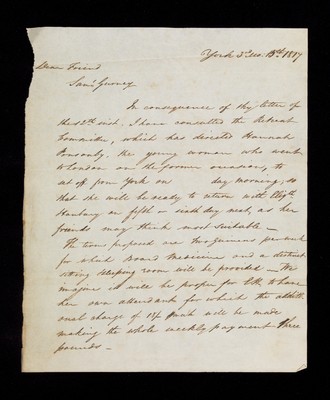 York 3d. Mo. 13th. 1817
Dear Friend
Saml. Gurney
In consequence of thy letter of
the 12th. inst. I have consulted the Retreat
Committee, which has directed Hannah
Ponsonby, the young woman who went
to London on the former occasion, to
set off from York on day morning, so
that she will be ready to return with Elizth.
Hanbury on fifth or sixth day next, as her
friends may think most suitable —
The terms proposed are two guineas per week
for which Board Medicine and a distinct
sitting & sleeping room will be provided — We
imagine it will be proper for E.H. to have
her own attendant for which the additi-
onal charge of 18/ week will be made
making the whole weekly payment three
pounds —